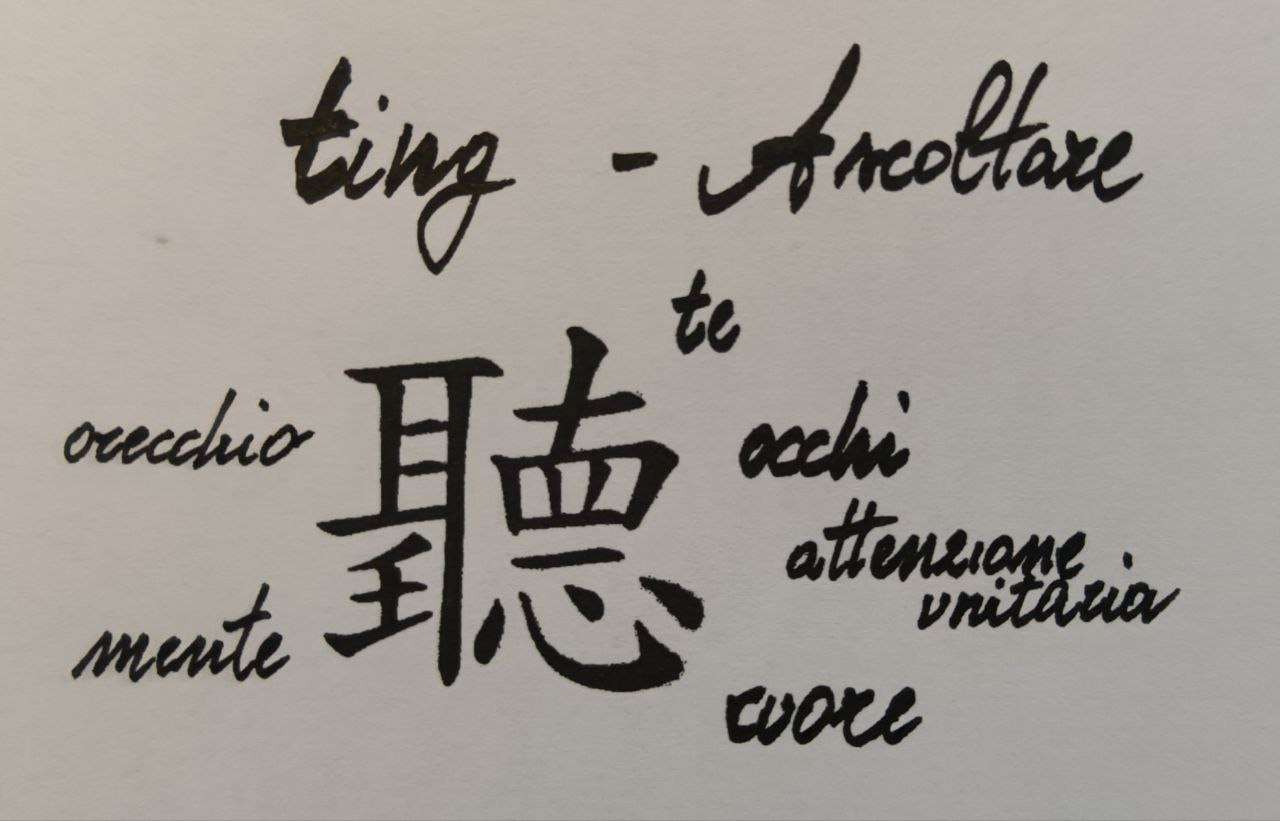 ting - Ascoltare
te
orecchio
聽
occhi
attenzione
unitaria
mente
cuore